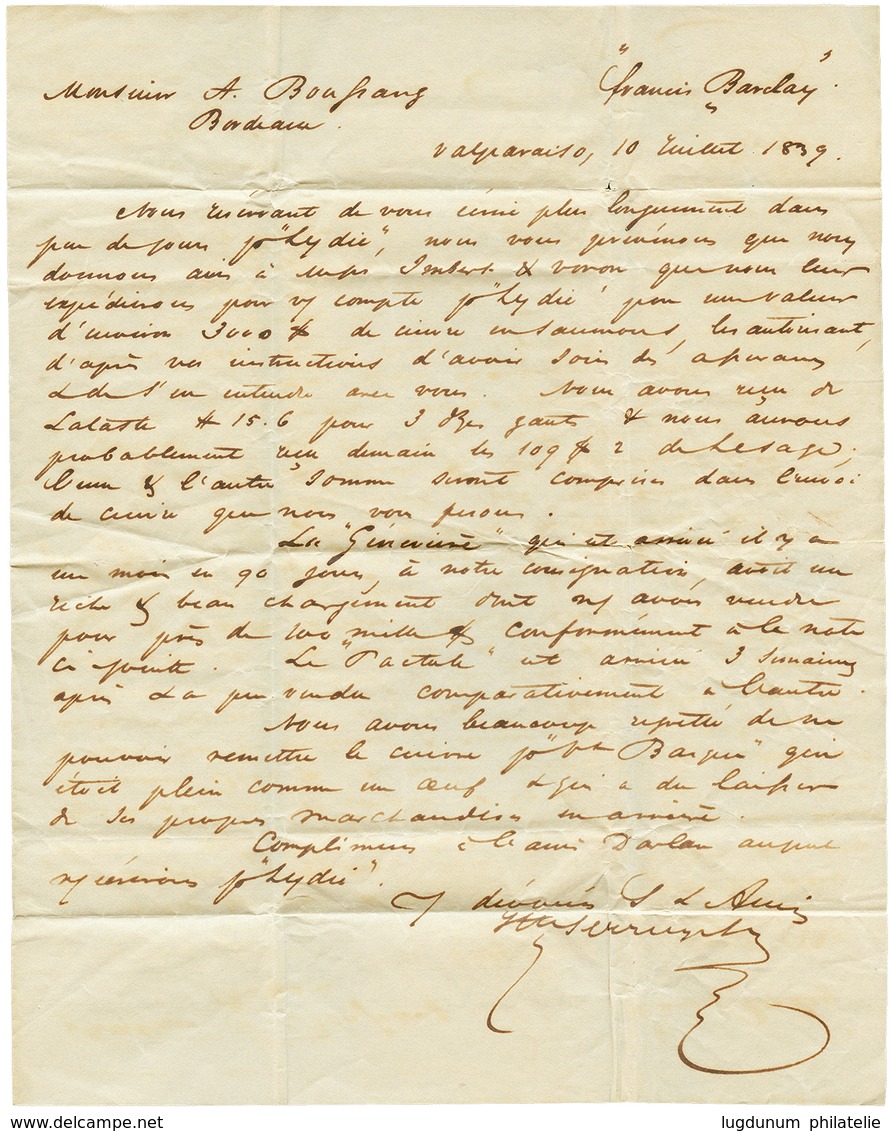 "Francis Barclay"
Monsieur A.
Bordeaux.
Valparaiso, 10 Juillet 1839.
Nous réservant de vous écrire plus longuement dans
peu de jours pr "Lydie", nous vous prévenons que nous
donnons avis à Imbert & que nous leur
expédierons pour compte pr "Lydie" pour une valeur
d'environ 3000 $ de cuivre en saumons, les autorisant,
d'après vos instructions d'avoir soin des assurances
& de s'en entendre avec vous. Nous avons reçu de
Lalaste $ 15.6 pour 3 dzes gants & nous aurons
probablement reçu demain les 109 $ 2 de Lesage;
l'une & l'autre somme seront comprises dans l'envoi
de cuivre que nous vous ferons.
La "Géneviève" qui est arrivée il y a
un mois en 90 jours, à notre consignation, avait un
riche & beau chargement dont ns avons vendu
pour près de 100 mille $ conformément à la note
ci jointe. Le "Pactole" est arrivé 3 semaines
après & a peu vendu comparativement à l'autre.
Nous avons beaucoup regretté de ne
pouvoir remettre le cuivre pr qui
était plein comme un œuf & qui a du laisser
de ses propres marchandises en arrière.
Complimens à l'ami Darlan auquel
ns écrirons pr "Lydie".
dévoués S & Amis